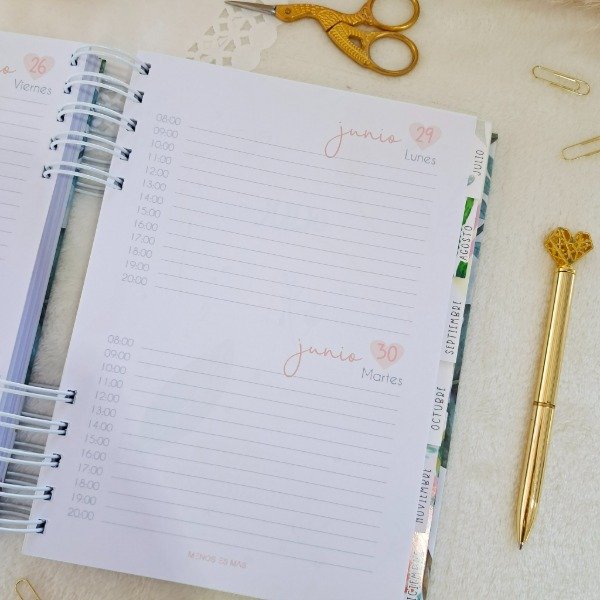 26
Viernes
junio 29
Lunes
08:00
09:00
10:00
11:00
12:00
13:00
14:00
15:00
16:00
17:00
18:00
19:00
20:00
junio 30
Martes
08:00
09:00
10:00
11:00
12:00
13:00
14:00
15:00
16:00
17:00
18:00
19:00
20:00
MENOS ES MAS
JULIO
AGOSTO
SEPTIEMBRE
OCTUBRE
NOVIEMBRE